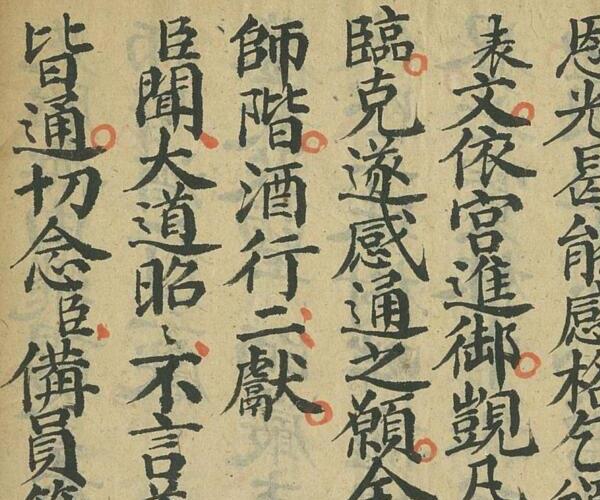 恩光曷能感格乞
表文依宮進御觊凡
臨克遂感通之願
師階酒行二獻
臣聞大道昭〻不言
皆通切念臣備員